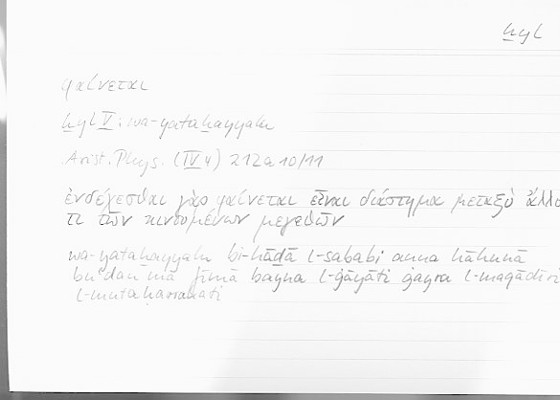 ḫyl
φαίνεται
ḫyl V: wa-yataḫayyalu
Arist. Phys. (IV 4) 212a10/11
ἐνδέχεσθαι γὰρ φαίνεται εἶναι διάστημα μεταξὺ ἄλλο
τι τῶν κινουμένων μεγεθῶν
wa-yataḫayyalu bi-hāḏā l-sababi anna hāhunā
buʿdan mā fīmā bayna l-ġāyāti ġayra l-maqādīri
l-mutaḥarrikati